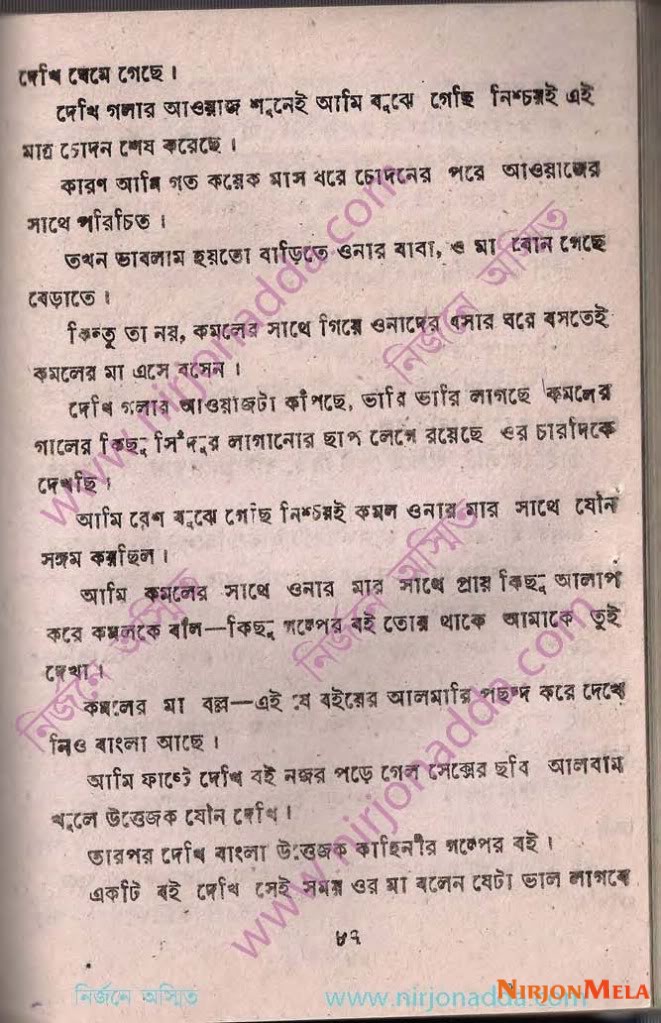 দেখি থেমে গেছে।
দেখি গলার আওয়াজ শুনেই আমি বুঝে গেছি নিশ্চয়ই এই
মাত্র চোদন শেষ করেছে।
কারণ আমি গত কয়েক মাস ধরে চোদনের পরে আওয়াজের
সাথে পরিচিত।
তখন ভাবলাম হয়তো বাড়িতে ওনার বাবা, ও মা বোন গেছে
বেড়াতে।
কিন্তু তা নয়, কমলের সাথে গিয়ে ওনাদের বসার ঘরে বসতেই
কমলের মা এসে বসেন।
দেখি গলার আওয়াজটা কাঁপছে, ভারি ভারি লাগছে কমলের
গালের কিছু সিঁদুর লাগানোর ছাপ লেগে রয়েছে ওর চারদিকে
দেখছি।
আমি বেশ বুঝে গেছি নিশ্চয়ই কমল ওনার মার সাথে যৌন
সঙ্গম করছিল।
আমি কমলের সাথে ওনার মার সাথে প্রায় কিছু আলাপ
করে কমলকে বলি—কিছু গল্পের বই তোর থাকে আমাকে তুই
দেখা।
কমলের মা বল্ল—এই যে বইয়ের আলমারি পছন্দ করে দেখে
নিও বাংলা আছে।
আমি ফাষ্টে দেখি বই নজর পড়ে গেল সেক্সের ছবি আলবাম
খুলে উত্তেজক যৌন দেখি।
তারপর দেখি বাংলা উত্তেজক কাহিনীর গল্পের বই।
একটি বই দেখি সেই সময় ওর মা বলেন যেটা ভাল লাগবে
৮২
www.nirjonadda.com
নির্জনে অস্মিত
নির্জনে অস্মিত
নির্জনে অস্মিত
www.nirjonadda.com
নির্জনে অস্মিত
www.nirjonadda.com
NIRJONMELA